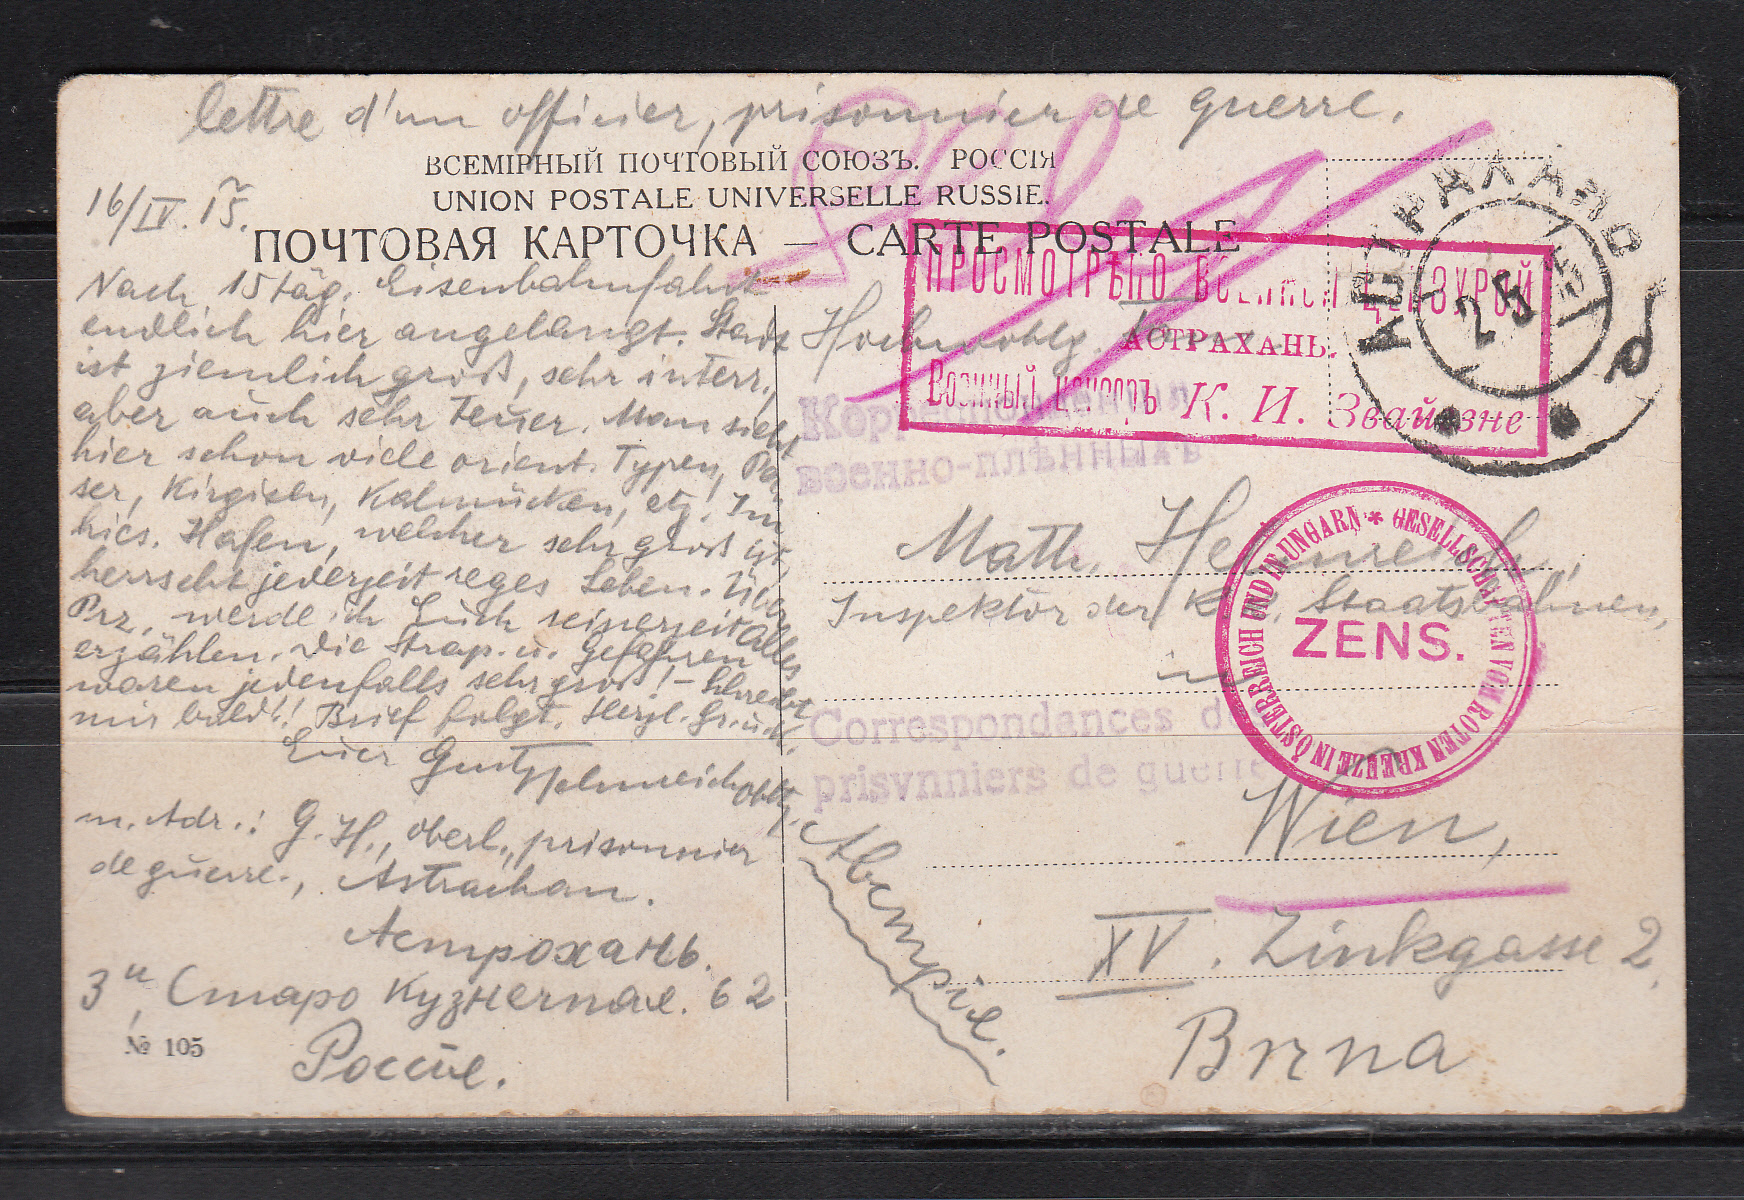 lettre d'un officier, prisonnier de guerre.
ВСЕМІРНЫЙ ПОЧТОВЫЙ СОЮЗЪ. РОССІЯ
UNION POSTALE UNIVERSELLE RUSSIE.
ПОЧТОВАЯ КАРТОЧКА — CARTE POSTALE
16/IV. 15.
Nach 15täg. Eisenbahnfahrt
endlich hier angelangt. Stadt
ist ziemlich groß, sehr interr.,
aber auch sehr teuer. Man sieht
hier schon viele orient. Typen, Per
ser, Kirgisen, Kalmücken, etz. Im
hies. Hafen, welcher sehr groß ist,
herrscht jederzeit reges Leben. Über
Prz. werde ich Euch seinerzeit Alles
erzählen. Die Strap. u. Gefahren
waren jedenfalls sehr groß! – Schreibt
mir bald! Brief folgt. Herzl. Gr. u. K.
Euer
m. Adr.: G. H., oberl., prisonnier
de guerre., Astrachan.
Астрохань.
3 и, Старо Кузнечная. 62
Россіе.
№ 105
ПРОСМОТРѢНО ВОЕННОЙ ЦЕНЗУРОЙ
АСТРАХАНЬ.
Военный цензоръ К. И. Звайгзне
АСТРАХАНЬ
2 5 15
Hochwohlg.
Корреспонденція
военно-плѣнныхъ
Math. Heinreich,
Inspektor der K.k. Staatsbahnen,
in
GESELLSCHAFTEN VOM ROTEN KREUZE IN ÖSTERREICH UND IN UNGARN *
ZENS.
Correspondances des
prisvnniers de guerre
Wien,
XV. Zinkgasse 2.
Австріе.
Вѣна